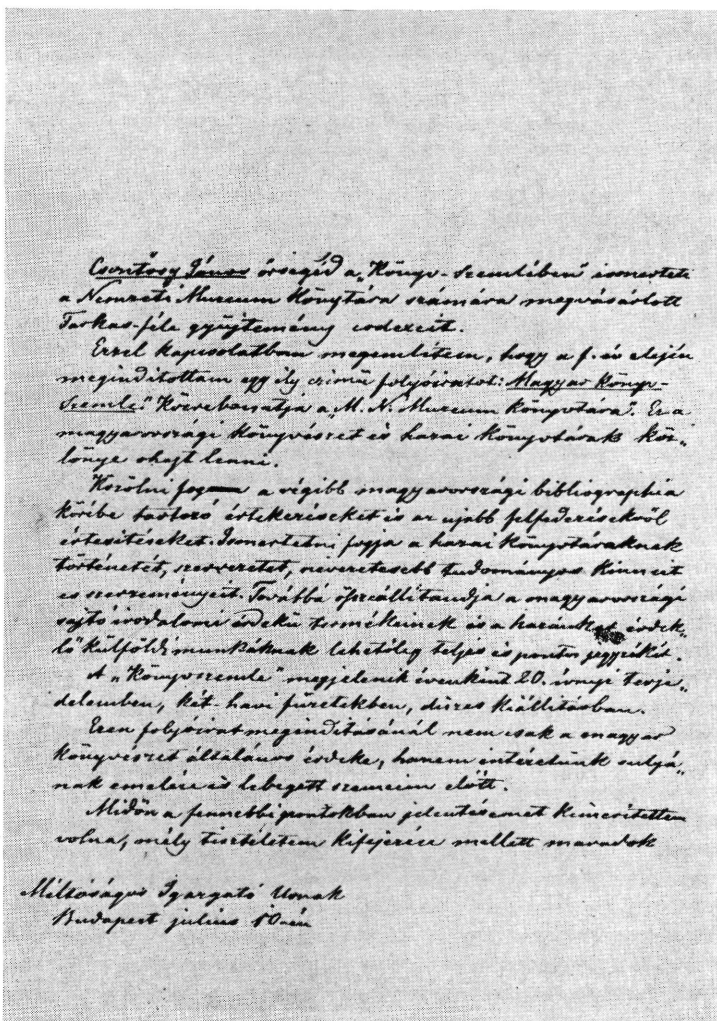 Csontosy János őrsegéd a „Könyv-Szemlében" ismerteti
a Nemzeti Muzeum Könytára számára megvásárlott
Farkas-féle gyüjtemény codexeit.
Ezzel kapcsolatban megemlítem, hogy a f. év elején
megindítottam egy ily czimü folyóiratot: „Magyar Könyv-
Szemle." Közrebocsátja a „M. N. Muzeum könyvtára". Ez a
magyarországi könyvészet és hazai könyvtárak köz-
lönye ohajt lenni.
Közölni fog a régibb magyarországi bibliographia
körébe tartozó értekezéseket és az ujabb felfedezésekről
értesitéseket. Ismertetni fogja a hazai könyvtáraknak
történetét, szervezetét, nevezetesebb tudományos kincseit
és szerzeményeit. Továbbá öszeállítandja a magyarországi
sajtó irodalomi érdekü termékeinek és a hazánkat érdek-
lő külföldi munkáknak lehetőleg teljes és pontos jegyzékét.
A „Könyvszemle" megjelenik évenkint 20. ívnyi terje-
delemben, két-havi füzetekben, díszes kiállitásban.
Ezen folyóirat megindításánál nem csak a magyar
könyvészet általános érdeke, hanem intézetünk sulyá-
nak emelése is lebegett szemeim előtt.
Midőn a fennebbi pontokban jelentésemet kimerítettem
volna, mély tiszteletem kifejezése mellett maradok
Méltóságos Igazgató Urnak
Budapest julius 10-én